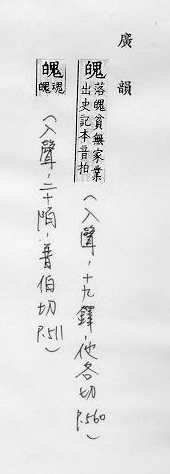 廣韻
魄落魄貧無家業出史記本音拍
(入聲,十九鐸,他各切 P.560)
魄魂魄
(入聲,二十陌,普伯切 P.511)